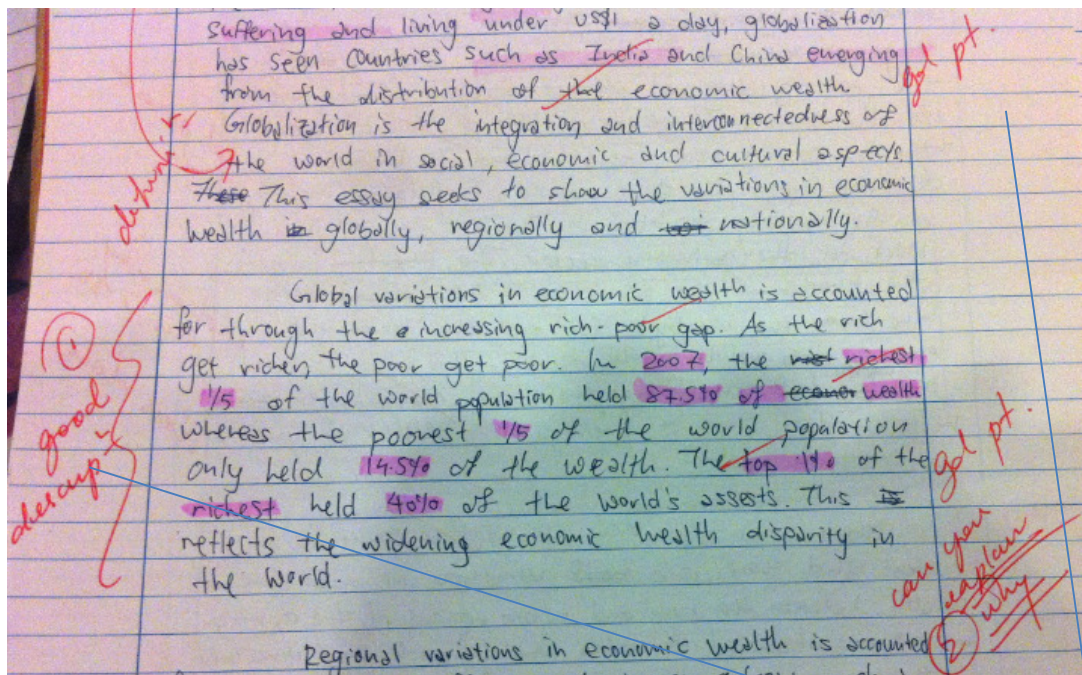 suffering and living under US$1 a day, globalization
has seen countries such as India and China emerging
from the distribution of the economic wealth.
Globalization is the integration and interconnectedness of
the world in social, economic and cultural aspects.
These This essay seeks to show the variations in economic
wealth in globally, regionally and nationally.
Global variations in economic wealth is accounted
for through the increasing rich-poor gap. As the rich
get richer, the poor get poor. In 2007, the richest
1/5 of the world population held 87.5% of wealth
whereas the poorest 1/5 of the world population
only held 14.5% of the wealth. The top 1% of the
richest held 40% of the world's assests. This is
reflects the widening economic wealth disparity in
the world.
Regional variations in economic wealth is accounted
gd pt.
definitn
1
good
descrip
gd pt.
can you
explain
why
2